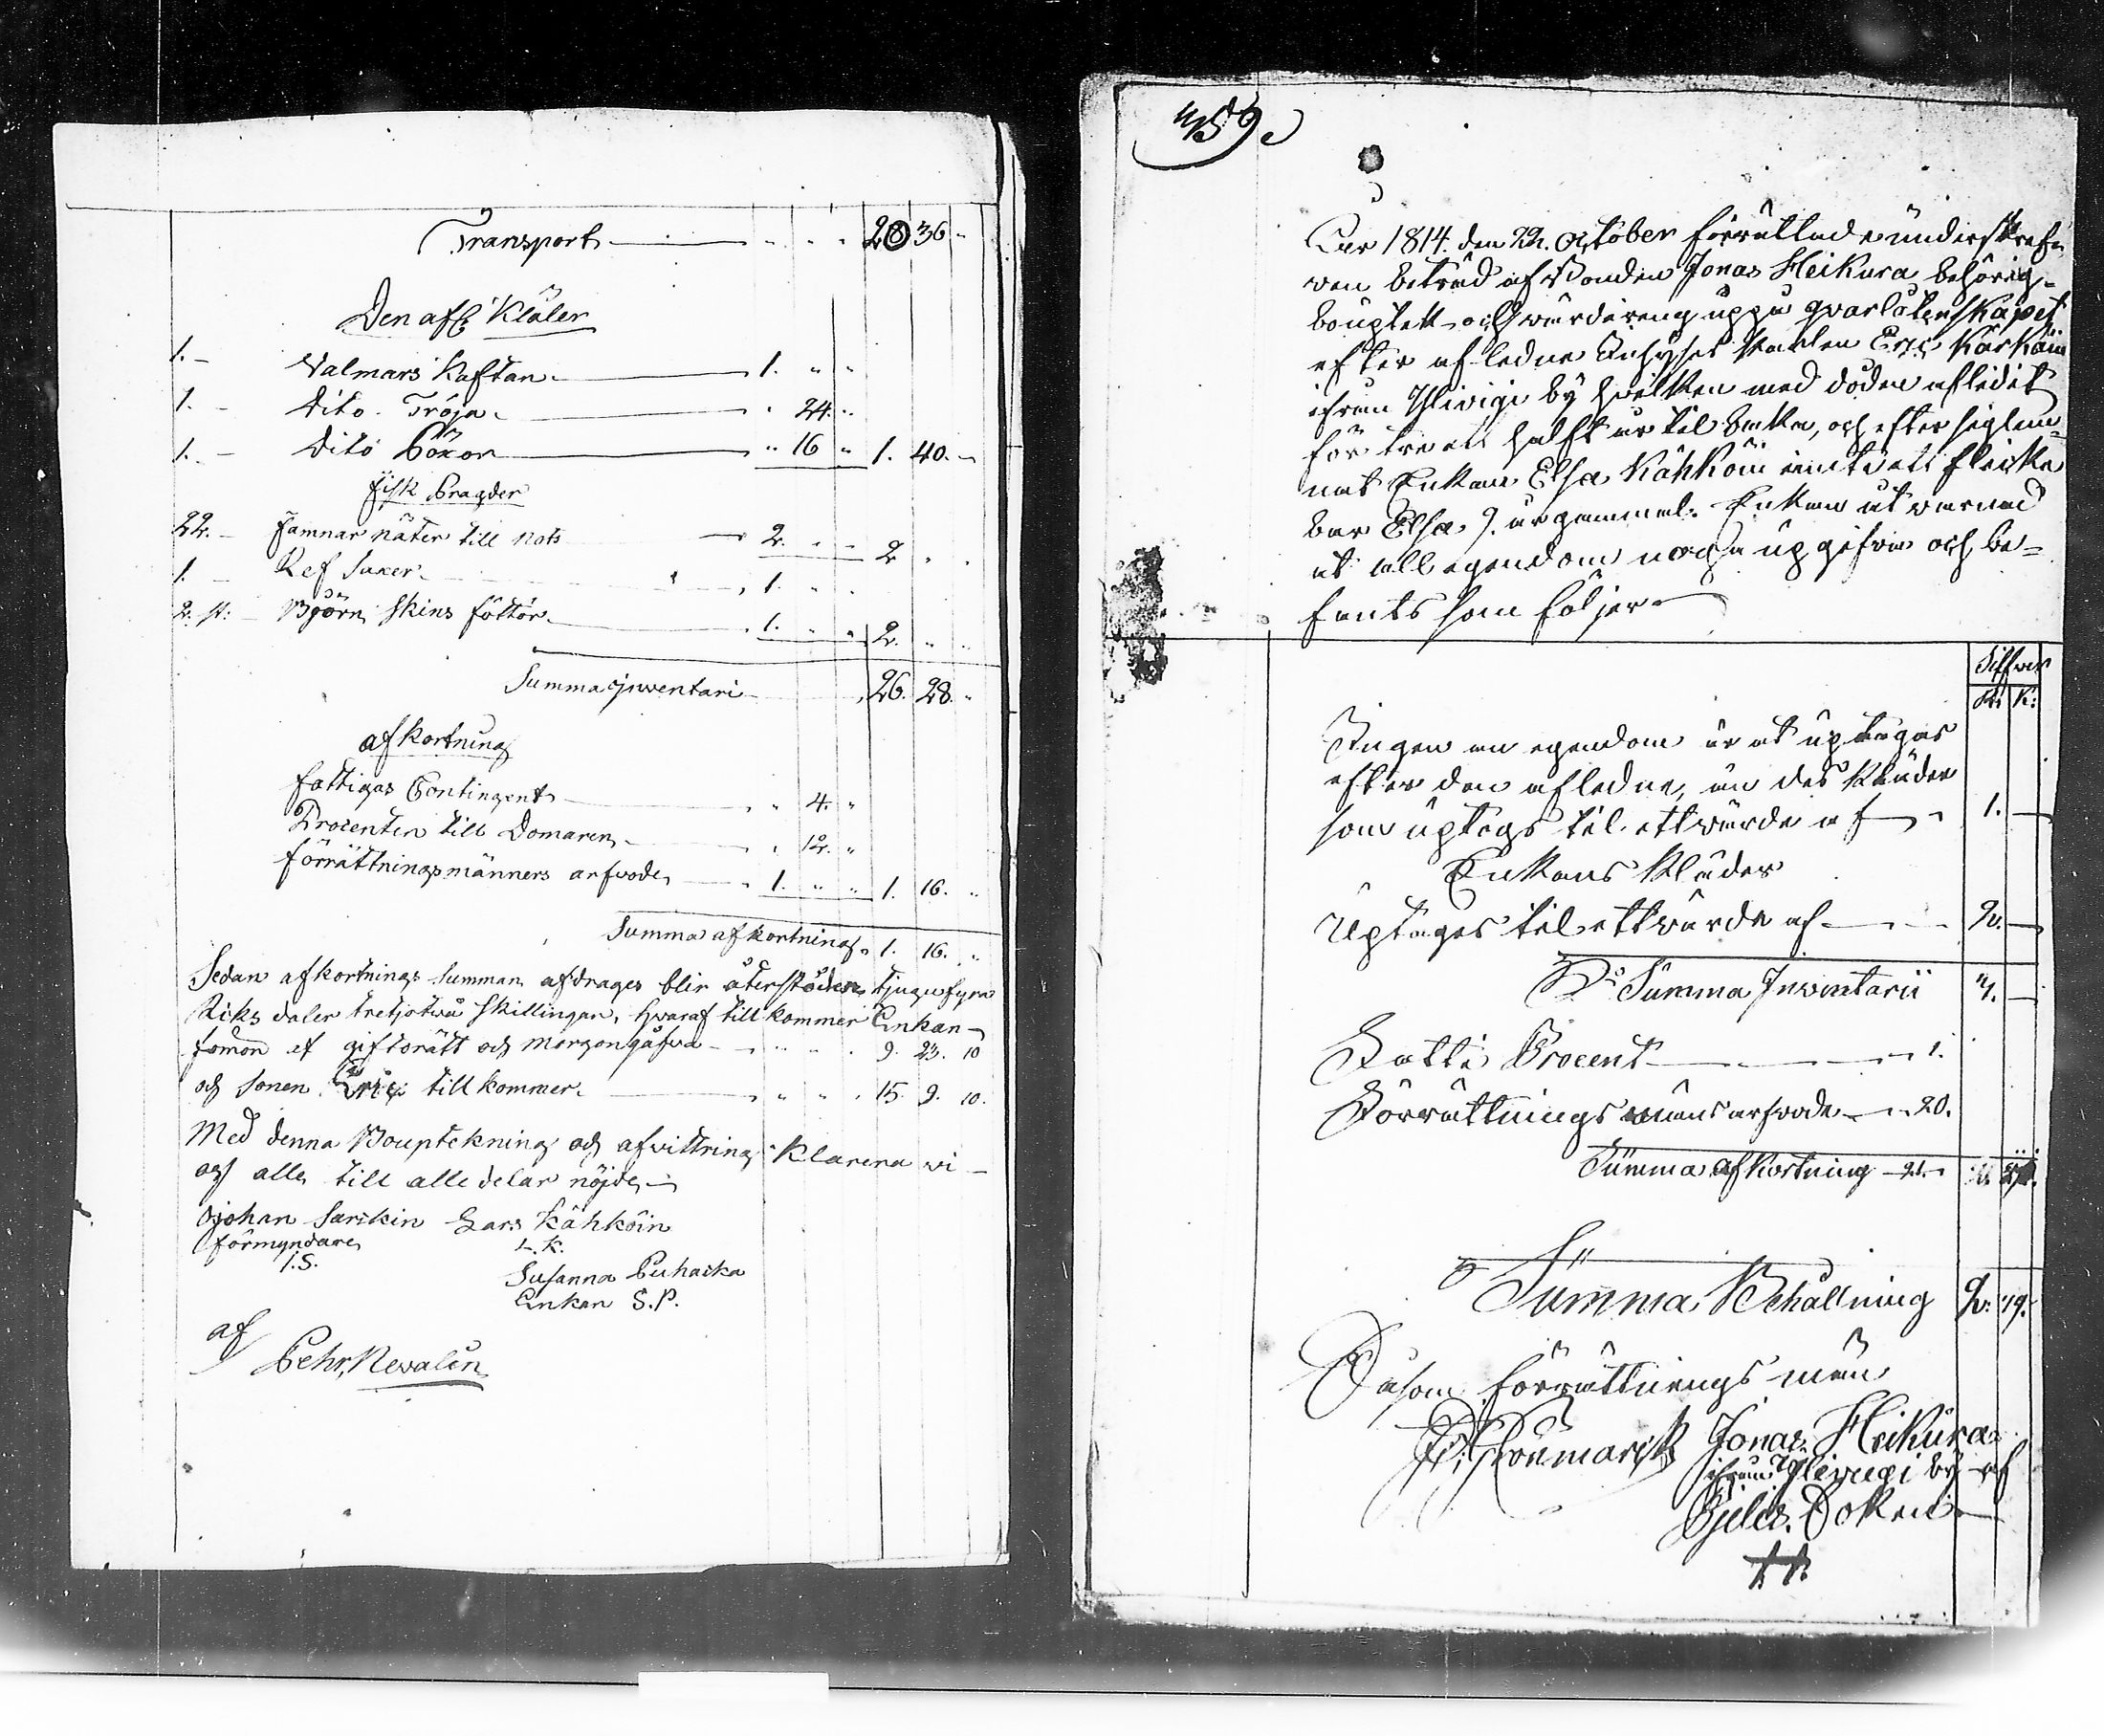 Transport 20 36 "
Den afl: Kläder
1. Valmars Kaftan 1. " "
1. Dito Tröja " 24. "
1. Dito Böxor " 16 " 1. 40. "
fisk Bragder
22. famnar näter till Nots 2. " " 2 " "
1. Ref Saxer 1. " "
2. st: Björn skins föttör 1. " " 2. " "
Summa Inventari 26. 28. "
afkortning
fattigas Contingent " 4. "
Procenten till Domaren " 12. "
förrättningsmänners arfvode 1. " " 1. 16. "
Summa afkortning 1. 16. "
Sedan afkortnings Summan afdrages blir återstoden tjugufyra
Riks daler tretjotvå skillingar, hvaraf till kommer Enkan
som af giftorätt och morgongåfva 9. 23. 10
och Sonen Eric till kommer 15. 9. 10.
Med denna Bouptekning och afvittring Klarera vi
och alla till alle delar nöjde
Johan Sarikin Lars Kähköin
förmyndare L. K.
I. S.
Susanna Puhacka
Enkan S. P.
af
Pehr Nevalin
459
Åar 1814 den 22. October förrättade undersskref
ven beträd af Bonden Jonas Heikura behörig
bouptekt och wärdering uppå qvarlåtenskapet
efter afledne Inhyses Karlen Eric Kärkäin
ifrån Ylivigi by hvilken med döden afledit
för tre ett halft år til baka, och efter sig lem
nat Enkan Elsa Kähköin samt ett flicke
bar Elsa 9. år gammal. Enkan åt varnad
at all egendom noga upgifva och be=
fants som följer
Silfver
R: K:
Ingen an egendom är at uptagas
efter den afledne, än des Kläder
som uptogs til ett wärde af 1.
Enkans Kläder
Uptages til ett wärde af 2.
Summa Inventarii
Fatti Procent 1.
Förrättnings mäns arfvode 20.
Summa afkortning 21.
Summa Behållning 2. 79.
Såsom förrättnings män
Jonas Heikura
ifrån Ylivigi by af